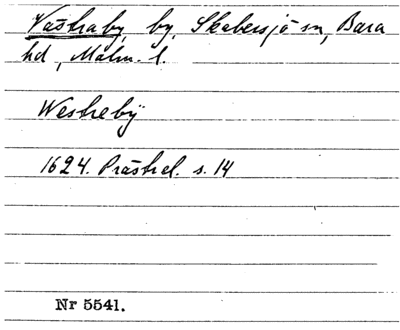 Västraby, by, Skabersjö sn, Bara
hd, Malm. l.
Westreby
1624. Prästrel. s. 14
Nr 5541.